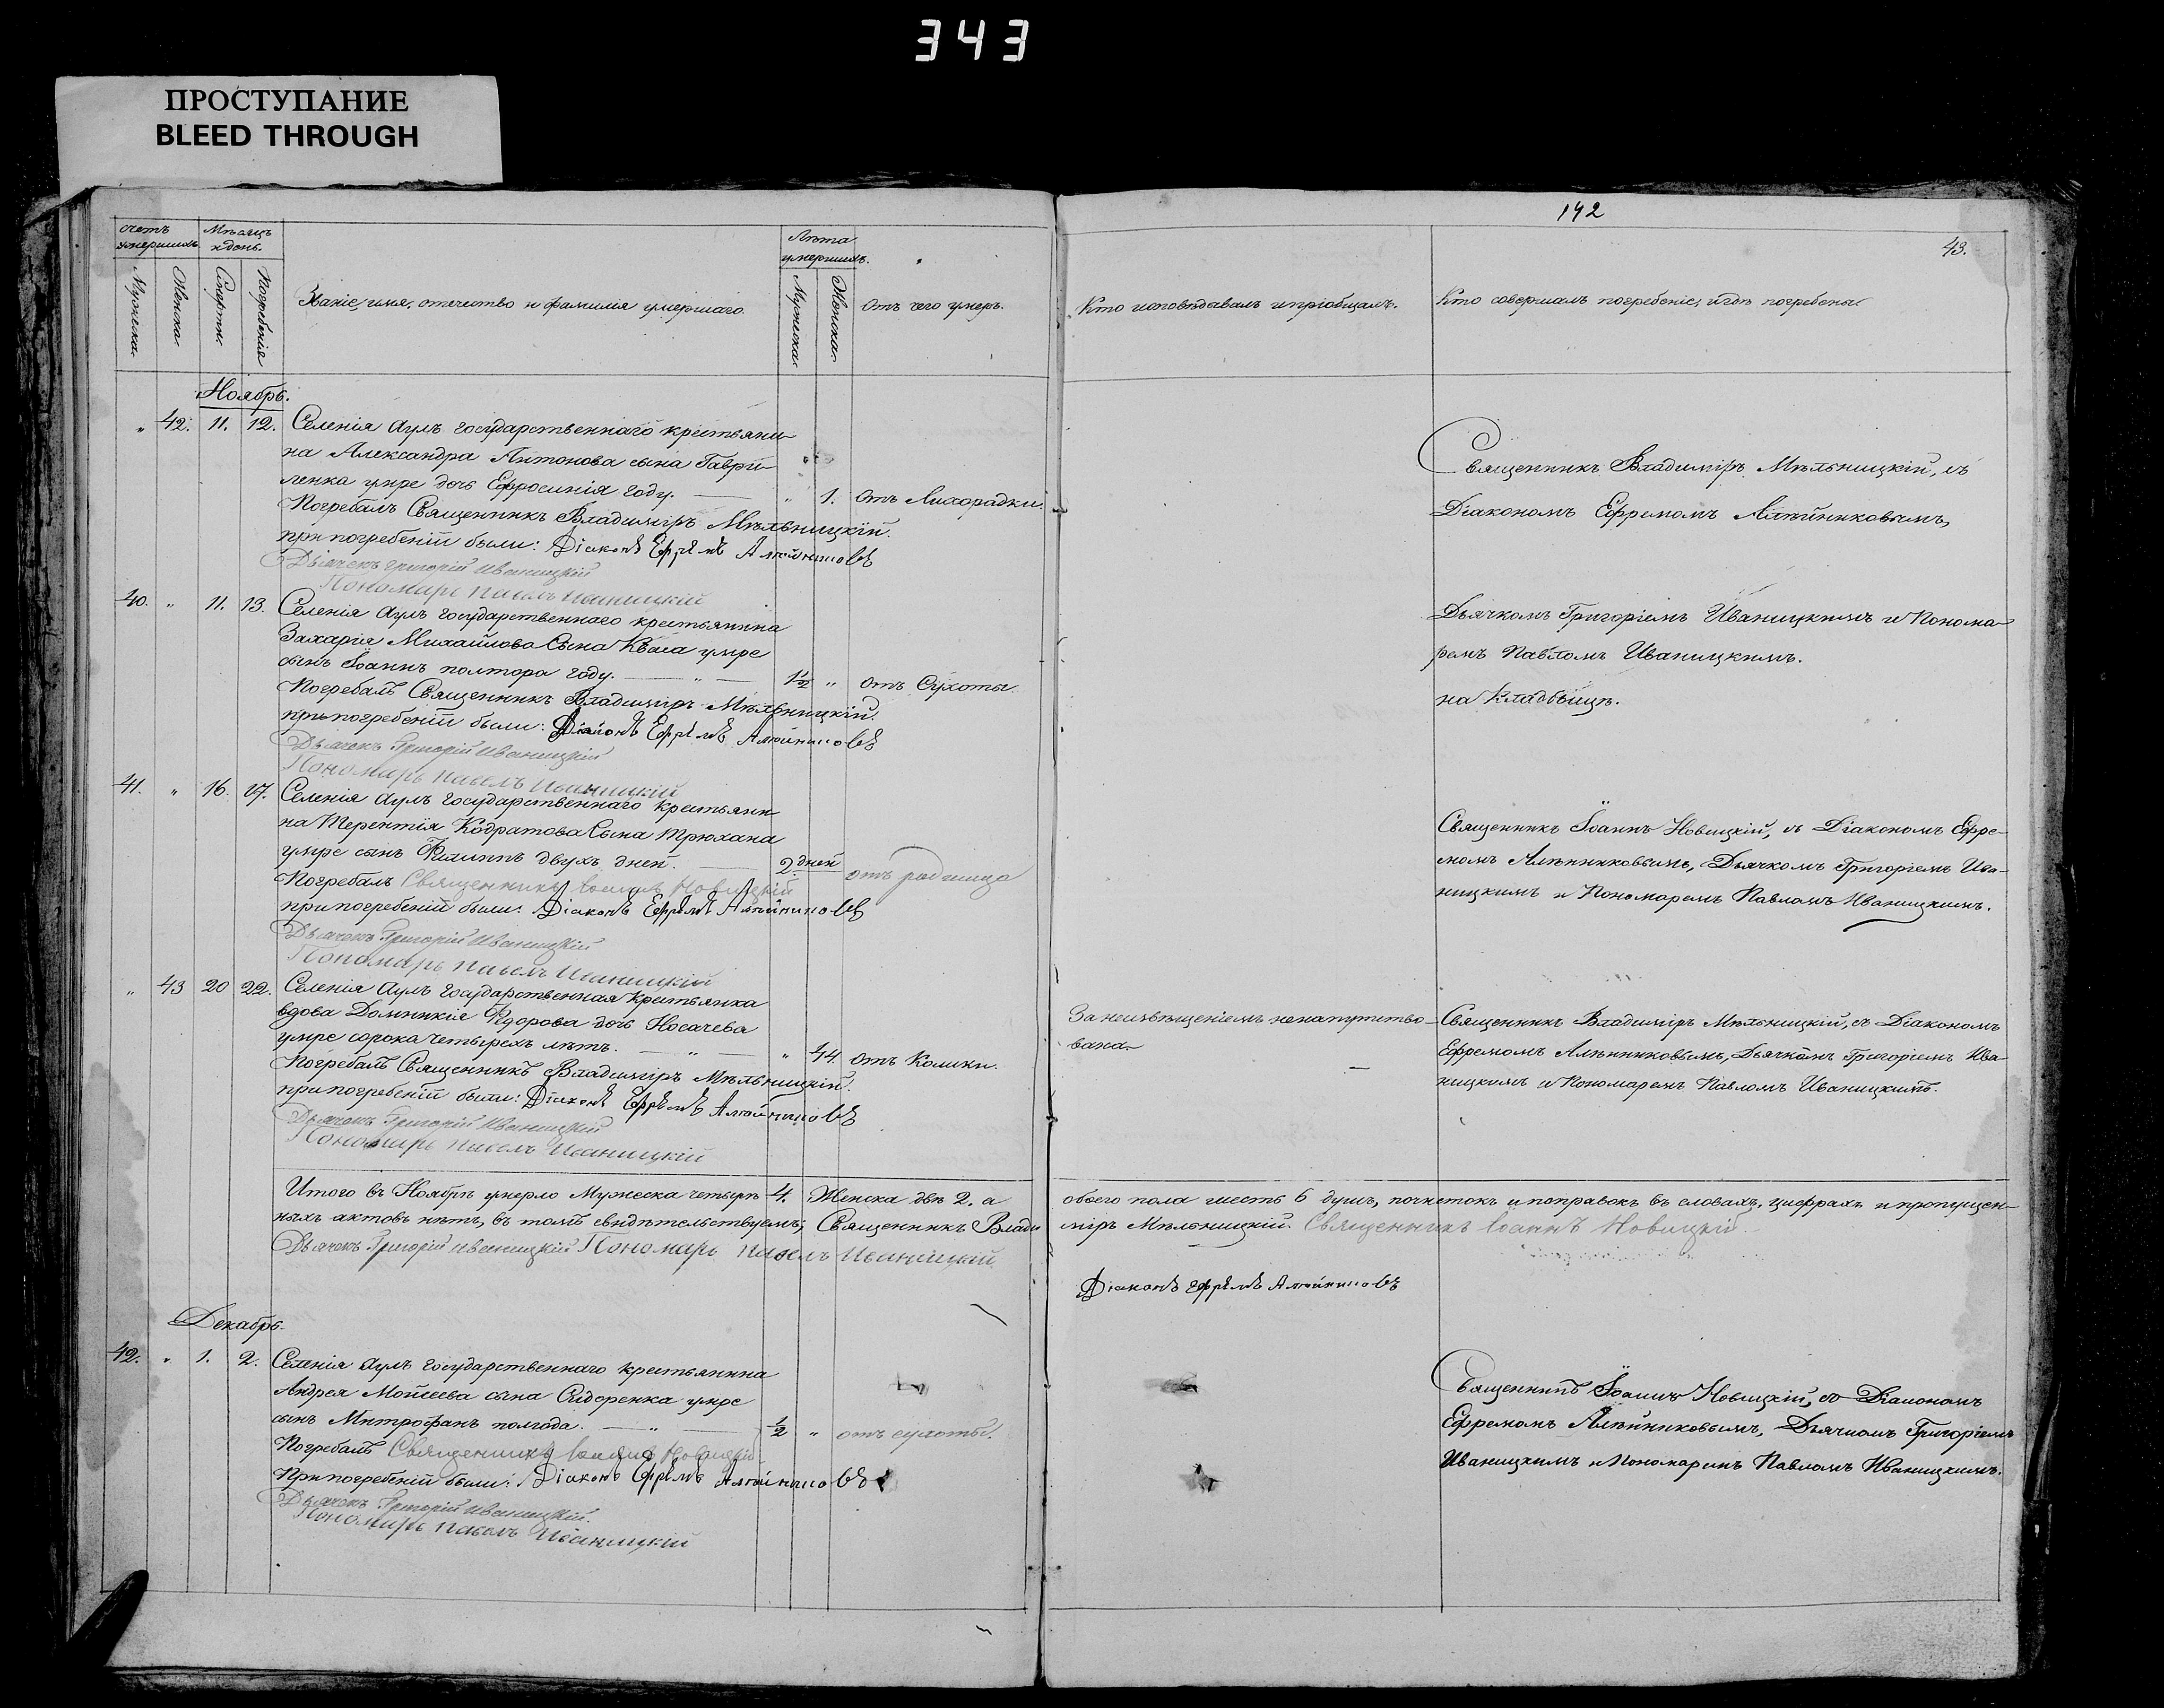 343
ПРОСТУПАНИЕ
BLEED THROUGH
142
43.
Счетъ умершихъ.
Мѣсяцъ и день.
Лѣта умершихъ.
Мужеска.
Женска.
Смерти.
Погребенія
Званіе, имя, отчество и фамилія умершаго.
Мужеска.
Женска.
Отъ чего умеръ.
Кто исповѣдавалъ и пріобщалъ.
Кто совершалъ погребеніе, и гдѣ погребены.
Ноябрь.
" 42. 11. 12. Селенія Аулъ государственнаго крестьяни-
на Александра Антонова сына Гаври-
ленка умре дочь Ефросинія году. — " 1. отъ Лихорадки.
Погребалъ Священникъ Владиміръ Мѣльницкій.
при погребеніи были: Діаконъ Ефремъ Алѣйниковъ
Дьячекъ Григорій Иваницкій
Пономарь Павелъ Иваницкій
Священникъ Владиміръ Мѣльницкій, съ
Діакономъ Ефремомъ Алѣйниковымъ,
Дьячкомъ Григоріемъ Иваницкимъ и Понома-
ремъ Павломъ Иваницкимъ.
на кладбищѣ.
40. " 11. 13. Селенія Аулъ государственнаго крестьянина
Захарія Михайлова Сына Кваса умре
сынъ Іоаннъ полтора году. — " — 1½ " отъ Сухоты.
Погребалъ Священникъ Владиміръ Мѣльницкій.
при погребеніи были: Діаконъ Ефремъ Алѣйниковъ
Дьячекъ Григорій Иваницкій
Пономарь Павелъ Иваницкій
41. " 16. 17. Селенія Аулъ государственнаго крестьяни-
на Терентія Кодратова Сына Трюхана
умре сынъ Филиппъ двухъ дней. — 2 дней отъ родимца
Погребалъ Священникъ Іоаннъ Новицкій
при погребеніи были: Діаконъ Ефремъ Алѣйниковъ
Дьячекъ Григорій Иваницкій
Пономарь Павелъ Иваницкій
Священникъ Іоаннъ Новицкій, съ Діакономъ Ефре-
момъ Алѣйниковымъ, Дьячкомъ Григоріемъ Ива-
ницкимъ и Пономаремъ Павломъ Иваницкимъ.
" 43 20 22. Селенія Аулъ государственная крестьянка
вдова Домникія Федорова дочь Носачева
умре сорока четырехъ лѣтъ. — " — " 44. отъ Колики.
Погребалъ Священникъ Владиміръ Мѣльницкій.
при погребеніи были: Діаконъ Ефремъ Алѣйниковъ
Дьячекъ Григорій Иваницкій
Пономарь Павелъ Иваницкій
За неизвѣщеніемъ ненапутство-
вана.
Священникъ Владиміръ Мѣльницкій, съ Діакономъ
Ефремомъ Алѣйниковымъ, Дьячкомъ Григоріемъ Ива-
ницкимъ и Пономаремъ Павломъ Иваницкимъ.
Итого въ Ноябрѣ умерло Мужеска четыре 4. Женска двѣ 2. а обоего пола шесть 6 душъ, почистокъ и поправокъ въ словахъ, цифрахъ и пропущен-
ныхъ актовъ нѣтъ, въ томъ свидѣтельствуемъ; Священникъ Влади міръ Мѣльницкій. Священникъ Іоаннъ Новицкій
Дьячекъ Григорій Иваницкій Пономарь Павелъ Иваницкій
Діаконъ Ефремъ Алѣйниковъ
Декабрь.
42. " 1. 2. Селенія Аулъ государственнаго крестьянина
Андрея Моисеева сына Сидоренка умре
сынъ Митрофанъ полгода. — " — ½ " отъ сухоты.
Погребалъ Священникъ Іоаннъ Новицкій
При погребеніи были: Діаконъ Ефремъ Алѣйниковъ
Дьячекъ Григорій Иваницкій.
Пономарь Павелъ Иваницкій
Священникъ Іоаннъ Новицкій, съ Діакономъ
Ефремомъ Алѣйниковымъ, Дьячкомъ Григоріемъ
Иваницкимъ и Пономаремъ Павломъ Иваницкимъ.